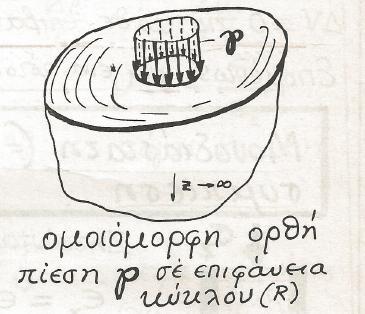 p
z→∞
ομοιόμορφη ορθή
πίεση p σέ επιφάνεια
κύκλου (R)